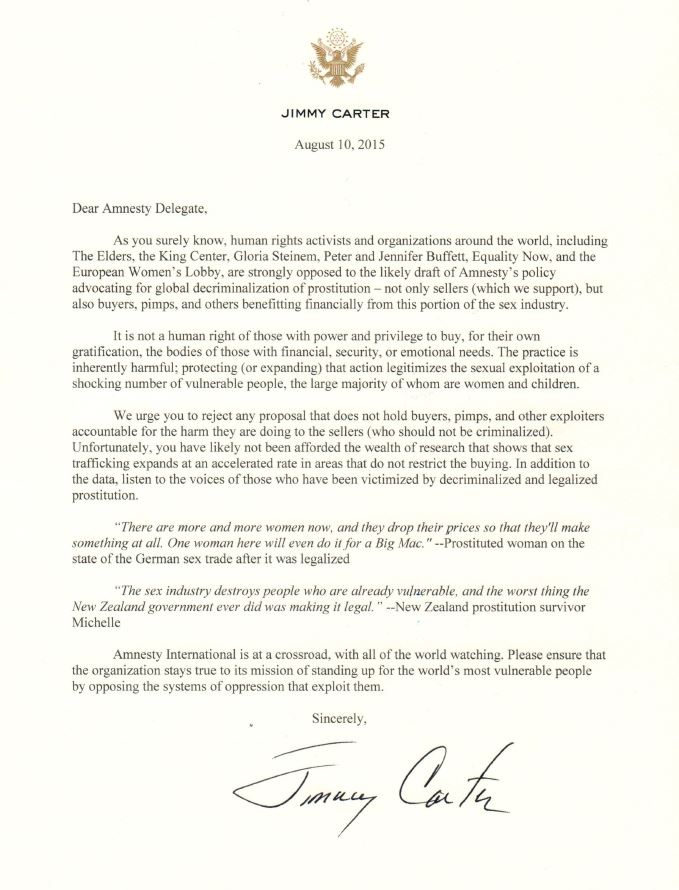 JIMMY CARTER
August 10, 2015
Dear Amnesty Delegate,
As you surely know, human rights activists and organizations around the world, including
The Elders, the King Center, Gloria Steinem, Peter and Jennifer Buffett, Equality Now, and the
European Women's Lobby, are strongly opposed to the likely draft of Amnesty's policy
advocating for global decriminalization of prostitution – not only sellers (which we support), but
also buyers, pimps, and others benefitting financially from this portion of the sex industry.
It is not a human right of those with power and privilege to buy, for their own
gratification, the bodies of those with financial, security, or emotional needs. The practice is
inherently harmful; protecting (or expanding) that action legitimizes the sexual exploitation of a
shocking number of vulnerable people, the large majority of whom are women and children.
We urge you to reject any proposal that does not hold buyers, pimps, and other exploiters
accountable for the harm they are doing to the sellers (who should not be criminalized).
Unfortunately, you have likely not been afforded the wealth of research that shows that sex
trafficking expands at an accelerated rate in areas that do not restrict the buying. In addition to
the data, listen to the voices of those who have been victimized by decriminalized and legalized
prostitution.
"There are more and more women now, and they drop their prices so that they'll make
something at all. One woman here will even do it for a Big Mac." --Prostituted woman on the
state of the German sex trade after it was legalized
"The sex industry destroys people who are already vulnerable, and the worst thing the
New Zealand government ever did was making it legal." --New Zealand prostitution survivor
Michelle
Amnesty International is at a crossroad, with all of the world watching. Please ensure that
the organization stays true to its mission of standing up for the world's most vulnerable people
by opposing the systems of oppression that exploit them.
Sincerely,
Jimmy Carter